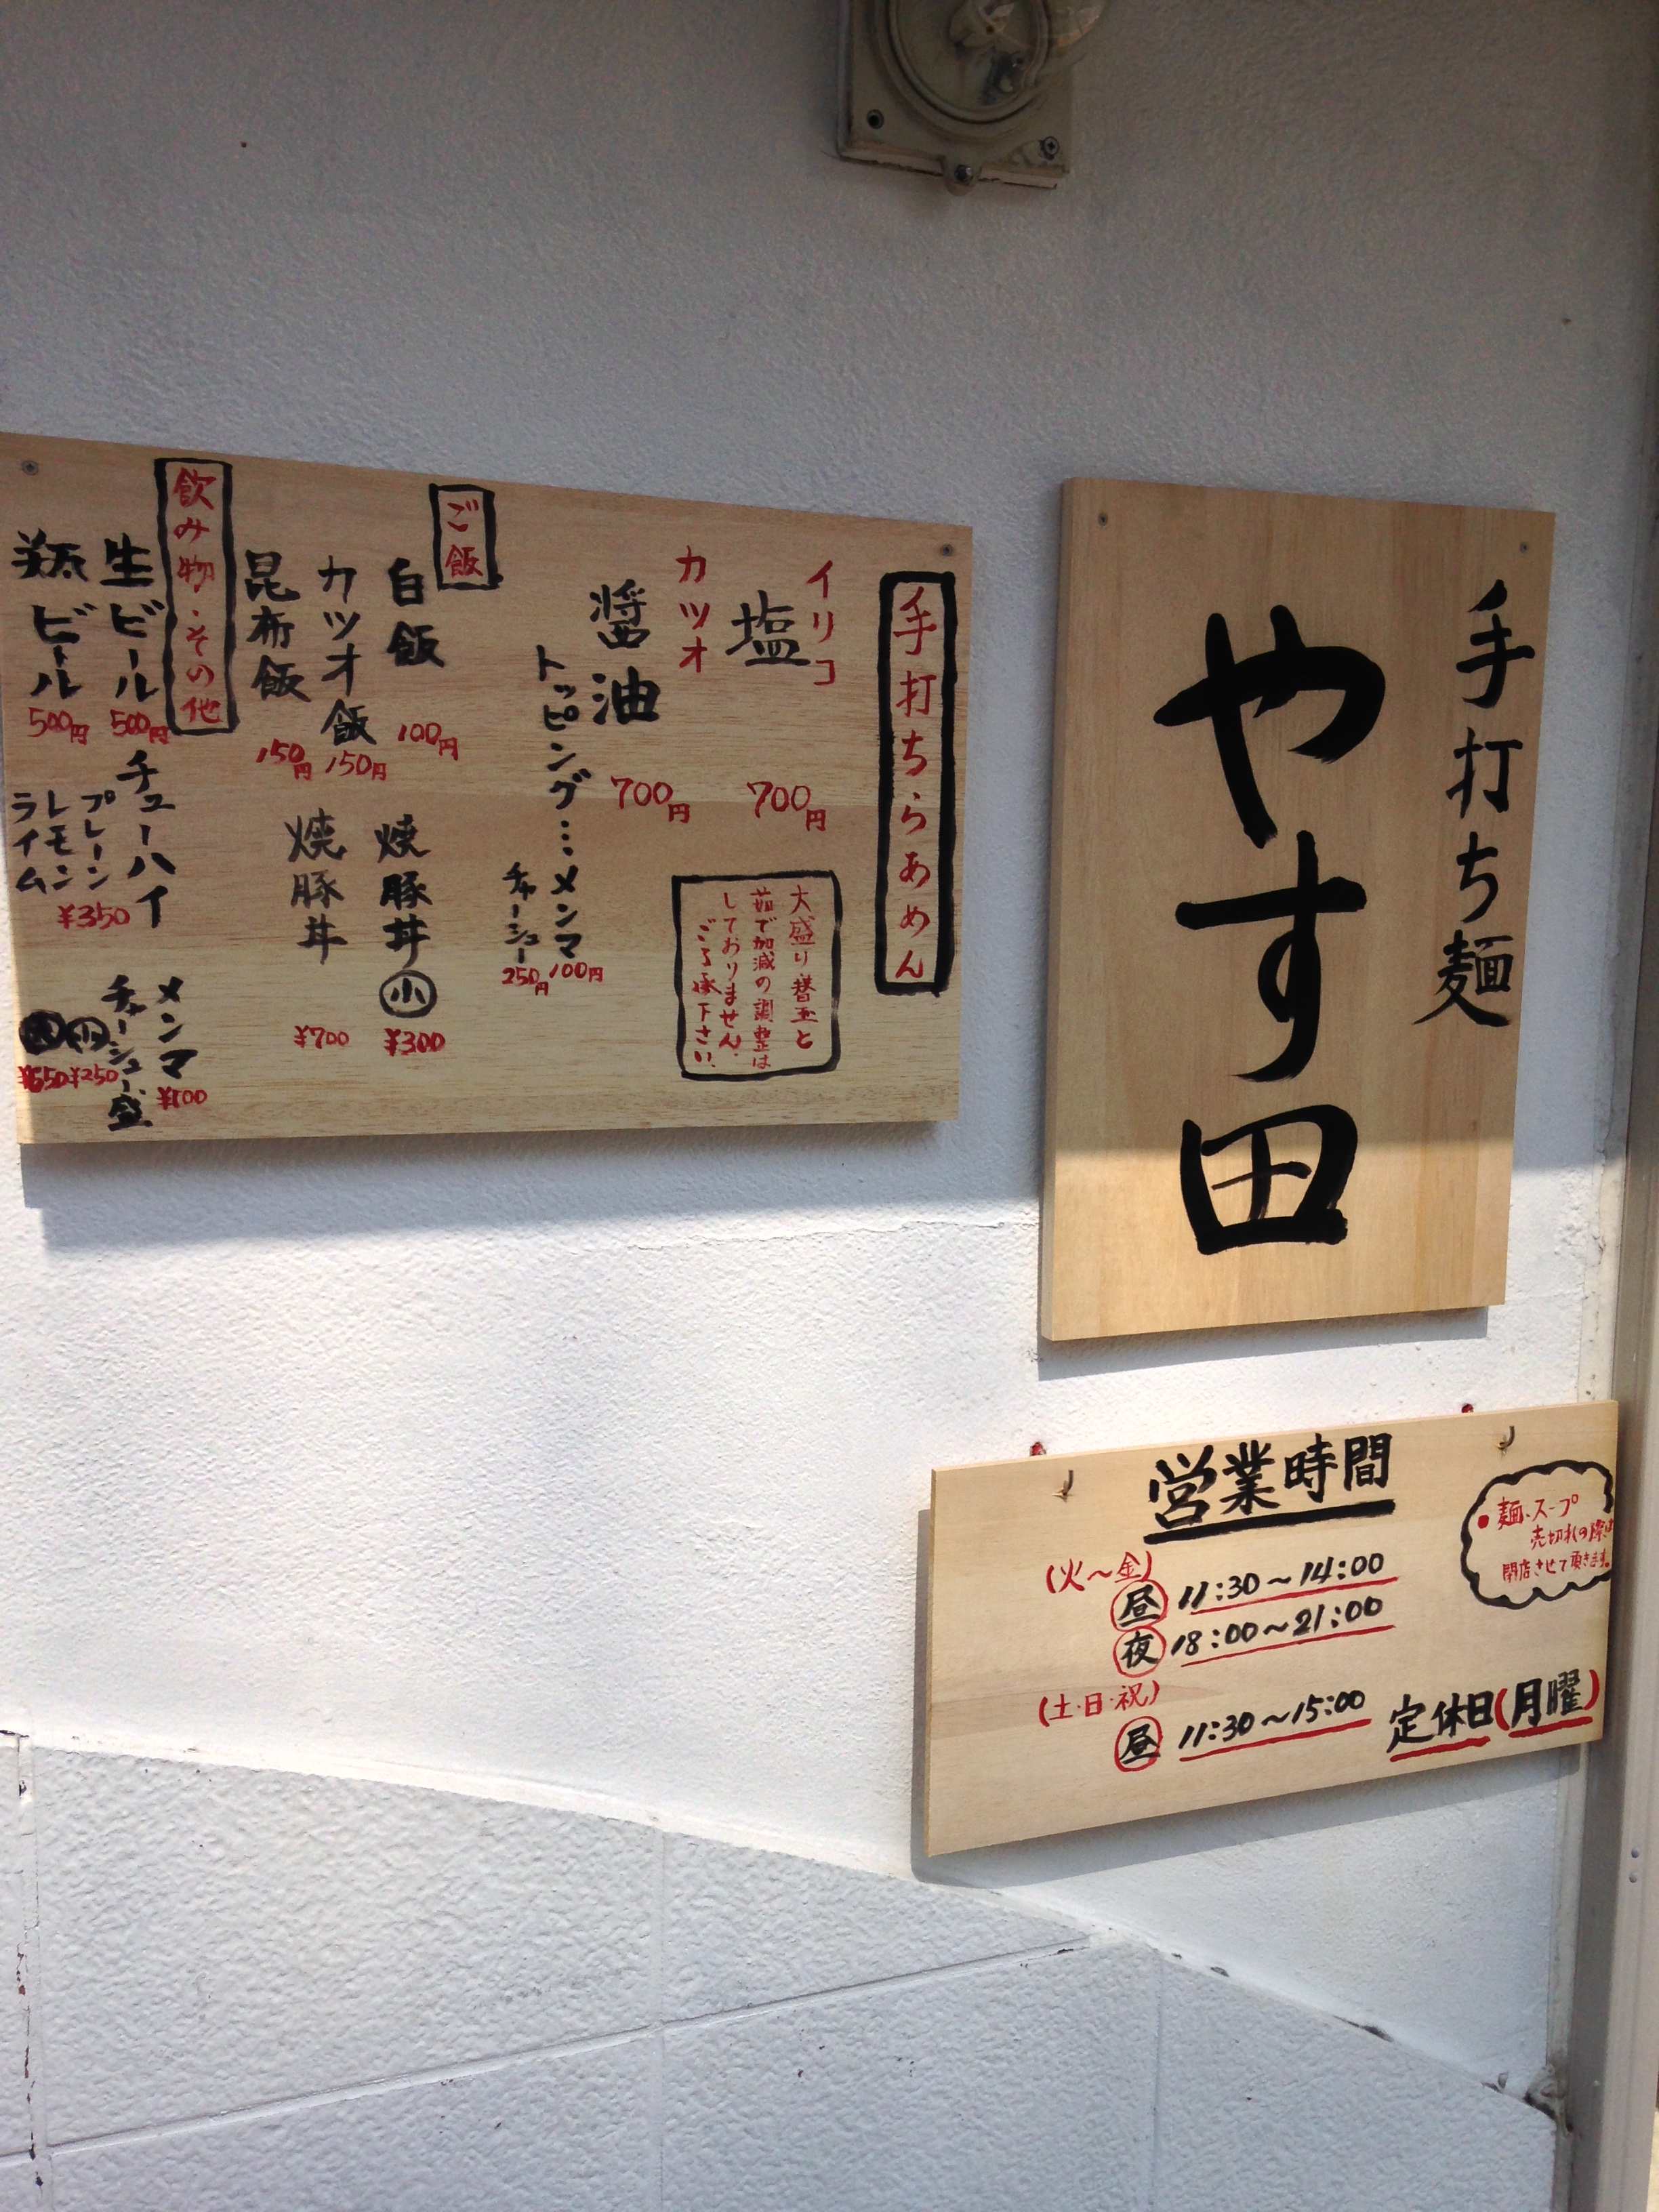 手打ち麺
やす田
手打ちらあめん
イリコ
塩
700円
カツオ
醤油
700円
トッピング…メンマ
100円
チャーシュー
250円
大盛り替玉と
茹で加減の調整は
しておりません。
ご了承下さい。
ご飯
白飯
100円
カツオ飯
150円
昆布飯
150円
焼豚丼小
¥300
焼豚丼
¥700
飲み物・その他
生ビール
500円
瓶ビール
500円
チューハイ
プレーン
レモン
ライム
¥350
メンマ
¥100
チャーシュー盛
小
¥250
大
営業時間
(火〜金)
昼 11:30〜14:00
夜 18:00〜21:00
(土・日・祝)
昼 11:30〜15:00
定休日(月曜)
●麺、スープ
売切れの際は
閉店させて頂きます。